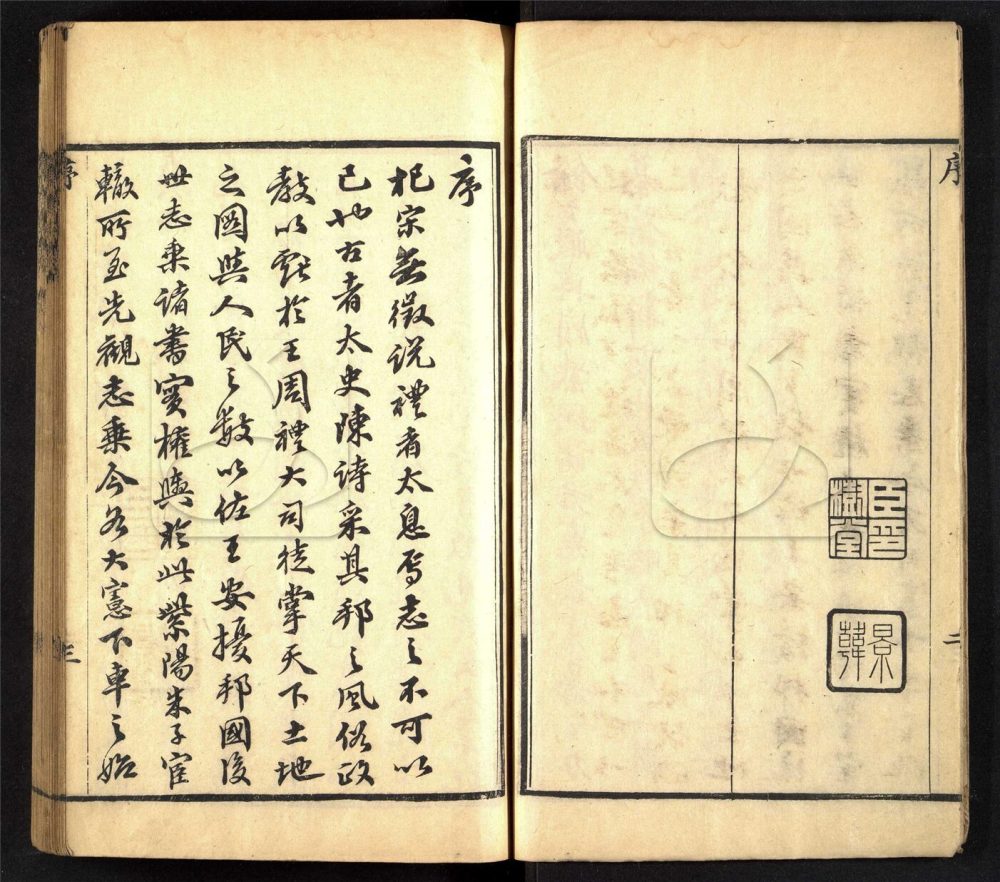 序
二
景韓
序
杞宋無徵説禮者太息焉志之不可以
已也古者太史陳詩采其邦之風俗政
教以獻於王周禮大司徒掌天下土地
之圖與人民之數以佐王安擾邦國後
世志乘諸書實權輿於此紫陽朱子宦
轍所至先觀志乘今各大憲下車之始
序
三